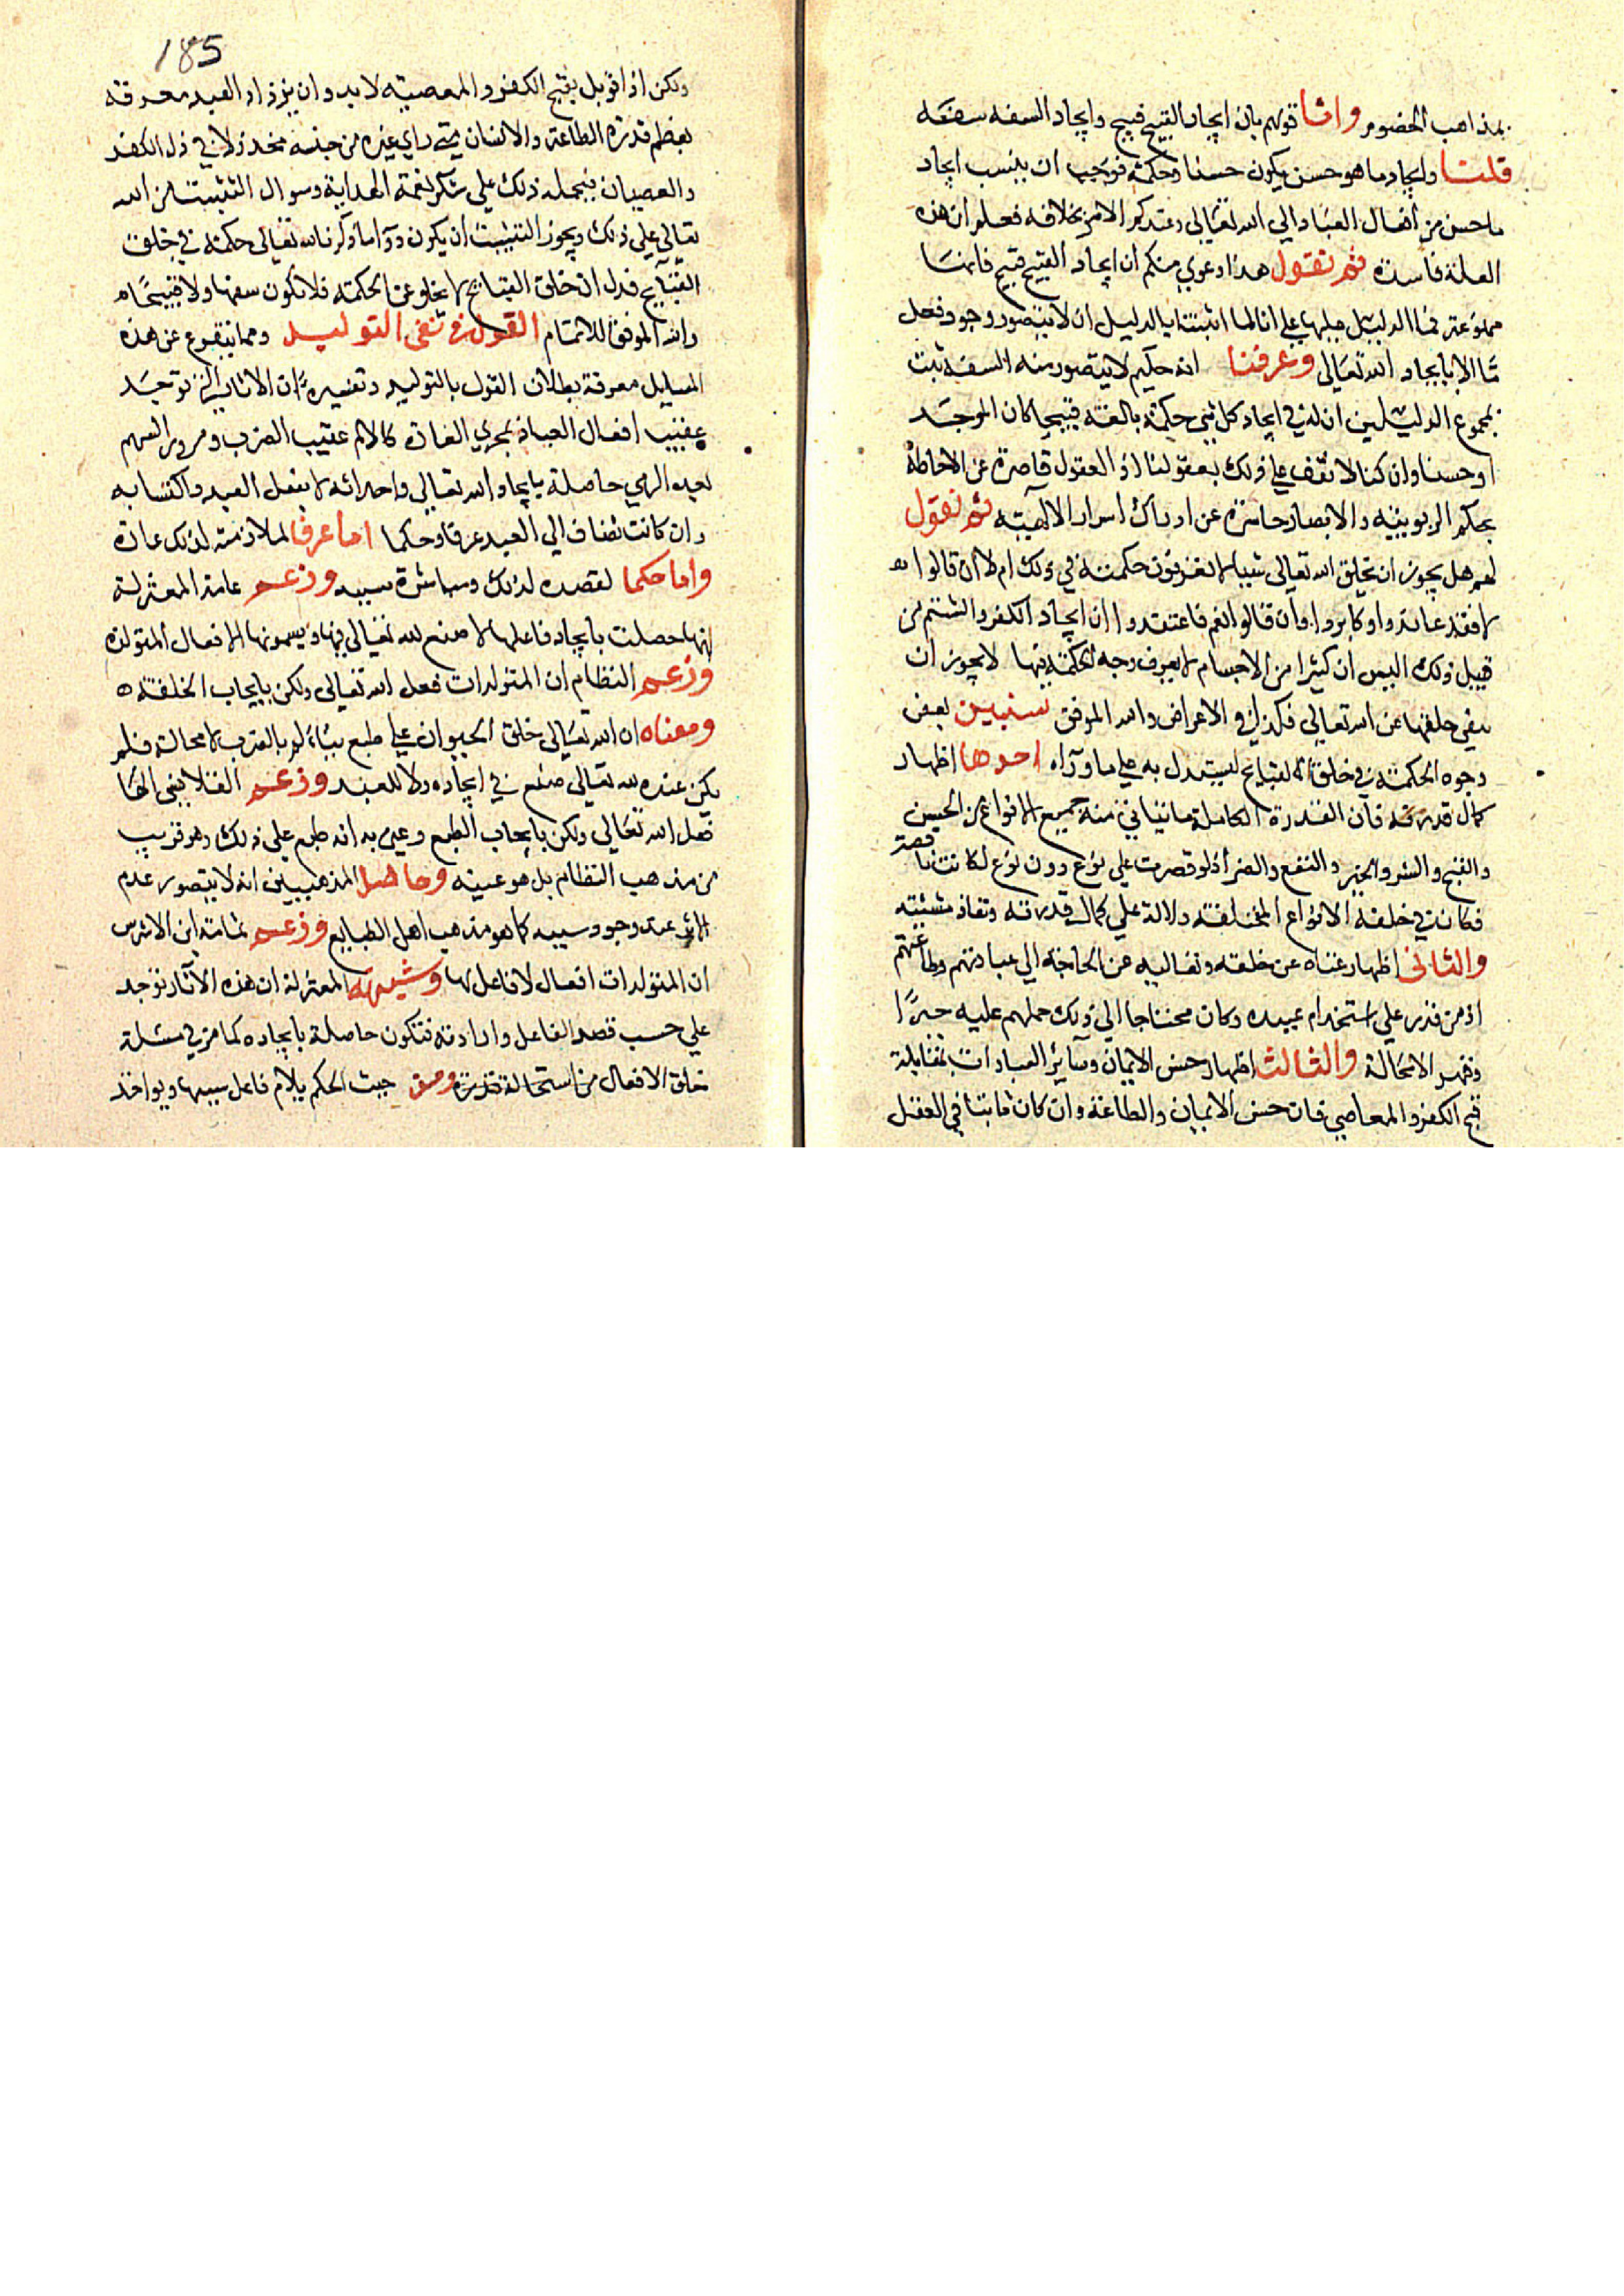 بمذاهب الخصوم واما قولهم بان ايجاد القبيح قبيح وايجاد السفه سفه
قلنا وايجاد ما هو حسن يكون حسنا وحكمة فوجب ان ينسب ايجاد
ما حسن من افعال العباد الى الله تعالى وعندكم الامر بخلافه فعلم ان هذه
العلة فاسدة ثم نقول هذا دعوي منكم ان ايجاد القبيح قبيح فانها
ممنوعة فما الدليل عليها على انا لما اثبتنا بالدليل ان لا يتصور وجود فعل
ما الا بايجاد الله تعالى وعرفنا انه حكيم لا يتصور منه السفه ثبت
بمجموع الدليلين ان له في ايجاد كل شي حكمة بالغة قبيحا كان الموجد
او حسنا وان كنا لا نقف على ذلك بعقولنا اذ العقول قاصرة عن الاحاطة
بحكم الربوبية والابصار حاسرة عن ادراك اسرار الالهية ثم نقول
لهم هل يجوز ان يخلق الله تعالى شيئا لا تعرفون حكمته في ذلك ام لا ان قالوا
لا فقد عاندوا وكابروا وان قالوا نعم فاعتقدوا ان ايجاد الكفر والشتم من
قبيل ذلك اليس ان كثيرا من الاجسام لا يعرف وجه الحكمة فيها لا يجوز ان
ينفى خلقها عن الله تعالى فكذلك في الاعراض والله الموفق سنبين بعض
وجوه الحكمة في خلق القبايح ليستدل به على ما ورآاه احدها اظهار
كمال قدرته فان القدرة الكاملة ما يتاتى منه جميع الانواع من الحسن
والقبح والشر والخير والنفع والضر اذ لو قصرت على نوع دون نوع لكانت
قصر
فكان في خلقه الانواع المختلفة دلالة على كمال قدرته ونفاذ مشيئته
والثاني اظهار غناه عن خلقه وتعاليه عن الحاجة الي عبادتهم وطاعتهم
اذ من قدر على استخدام عبيده وكان محتاجا الي ذلك حملهم عليه جبرا
وقهر الامحالة والثالث اظهار حسن الايمان وسائر العبادات بمقابلة
قبح الكفر والمعاصي فان حسن الايمان والطاعة وان كان ثابتا في العقل
185
ولكن اذا قوبل بقبح الكفر والمعصية لا بد وان يزداد العبد معرفة
بعظم قدرة الطاعة والانسان متي راي غيره من جنسه مخذولا في ذل الكفر
والعصيان فيحمله ذلك على شكر نعمة الهداية وسوال التثبيت من الله
تعالى على ذلك ويجوز التثبيت ان يكون دواما ذكرنا لله تعالى حكمة في خلق
القبايح فدل ان خلق القبايح لا يخلو عن الحكمة فلا يكون سفها ولا قبيحا
والله الموفق للاتمام القول في نفى التوليد ومما يتفرع عن هذه
المسايل معرفة بطلان القول بالتوليد وتفسيره ان الاثار التي توجد
عقيب افعال العباد بمجري العادة كالالم عقيب الضرب ومرور السهم
بعد الرمي حاصلة بايجاد الله تعالى واحداثه لا بفعل العبد واكتسابه
وان كانت تضاف الي العبد عرفا وحكما اما عرفا لملازمته لذلك عادة
واما حكما لقصده لذلك ومباشرة سببه وزعم عامة المعتزلة
انها حصلت بايجاد فاعلها لا صنع لله تعالى فيها ويسمونها الافعال المتولدة
وزعم النظام ان المتولدات فعل الله تعالى ولكن بايجاب الخلقة ه
ومعناه ان الله تعالى خلق الحيوان على طبع يتالم بالضرب لا محالة فلم
يكن عنده لله تعالى صنع في ايجاده ولا للعبد وزعم القلانسى انها
فعل الله تعالى ولكن بايجاب الطبع وعبر به انه طبع على ذلك وهو قريب
من مذهب النظام بل هو عينه وحاصل المذهبين انه لا يتصور عدم
الاثر عند وجود سببه كما هو مذهب اهل الطبايع وزعم ثمامة ابن الاشرس
ان المتولدات افعال لا فاعل لها وشبهة المعتزلة ان هذه الآثار توجد
على حسب قصد الفاعل وارادته فتكون حاصلة بايجاده كما مر في مسئلة
خلق الافعال من استحالة قدرة ومن حيث الحكم يلام فاعل سببها ويواخذ